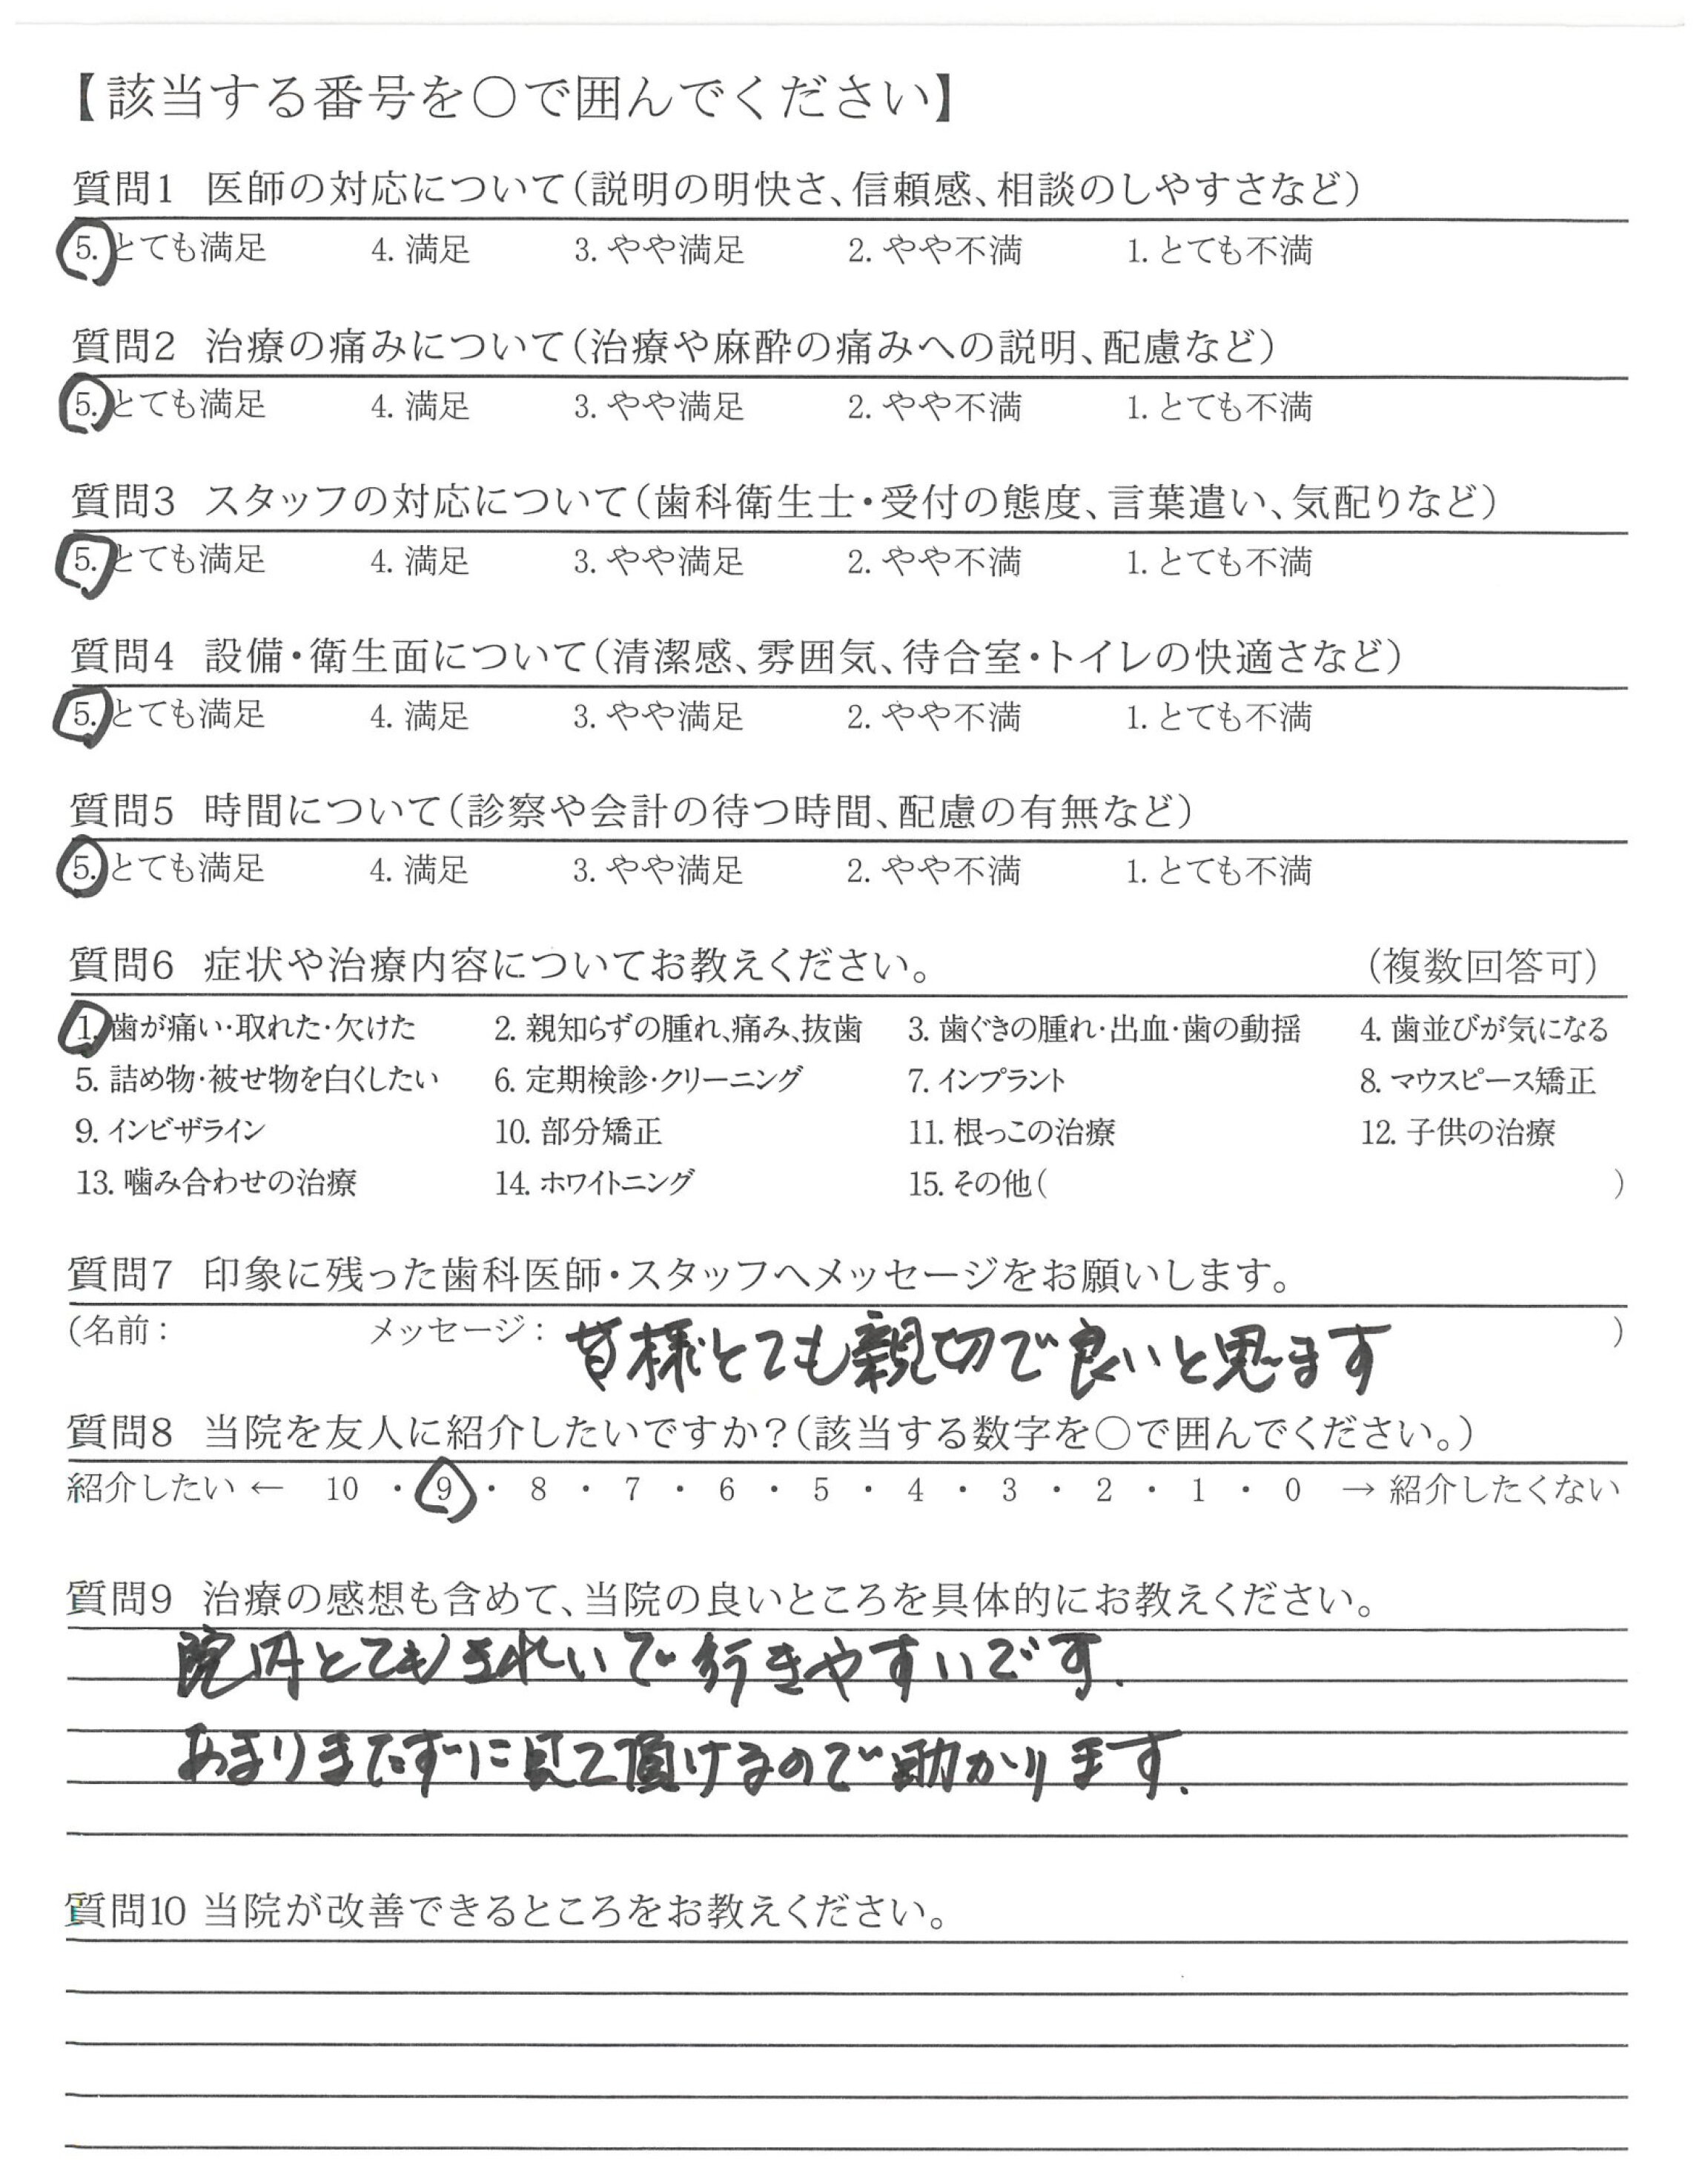 【該当する番号を〇で囲んでください】
質問1 医師の対応について(説明の明快さ、信頼感、相談のしやすさなど)
5. とても満足 4. 満足 3. やや満足 2. やや不満 1. とても不満
質問2 治療の痛みについて(治療や麻酔の痛みへの説明、配慮など)
5. とても満足 4. 満足 3. やや満足 2. やや不満 1. とても不満
質問3 スタッフの対応について(歯科衛生士・受付の態度、言葉遣い、気配りなど)
5. とても満足 4. 満足 3. やや満足 2. やや不満 1. とても不満
質問4 設備・衛生面について(清潔感、雰囲気、待合室・トイレの快適さなど)
5. とても満足 4. 満足 3. やや満足 2. やや不満 1. とても不満
質問5 時間について(診察や会計の待つ時間、配慮の有無など)
5. とても満足 4. 満足 3. やや満足 2. やや不満 1. とても不満
質問6 症状や治療内容についてお教えください。 (複数回答可)
1. 歯が痛い・取れた・欠けた 2. 親知らずの腫れ、痛み、抜歯 3. 歯ぐきの腫れ・出血・歯の動揺 4. 歯並びが気になる
5. 詰め物・被せ物を白くしたい 6. 定期検診・クリーニング 7. インプラント 8. マウスピース矯正
9. インビザライン 10. 部分矯正 11. 根っこの治療 12. 子供の治療
13. 噛み合わせの治療 14. ホワイトニング 15. その他( )
質問7 印象に残った歯科医師・スタッフへメッセージをお願いします。
(名前: メッセージ: 皆様とても親切で良いと思います )
質問8 当院を友人に紹介したいですか?(該当する数字を〇で囲んでください。)
紹介したい ← 10 ・ 9 ・ 8 ・ 7 ・ 6 ・ 5 ・ 4 ・ 3 ・ 2 ・ 1 ・ 0 → 紹介したくない
質問9 治療の感想も含めて、当院の良いところを具体的にお教えください。
院内とてもきれいで行きやすいです.
あまりまたずに見て頂けるので助かります.
質問10 当院が改善できるところをお教えください。